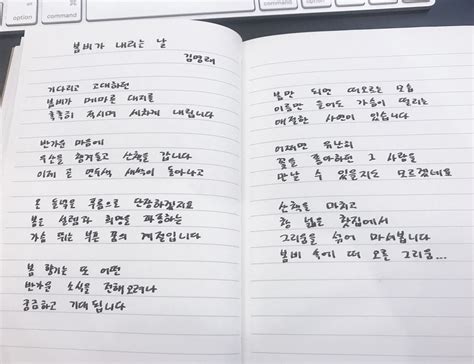 option
command
command
option
봄비가 내리는 날
김명래
기다리고 고대하던
봄비가 메마른 대지를
촉촉히 적시며 세차게 내립니다
반가운 마음에
우산을 챙겨들고 산책을 갑니다
이제 곧 연두색 새싹이 돋아나고
온 들녘을 푸름으로 단장하겠지요
봄은 설렘과 희망을 가득하는
가슴 뛰는 부푼 꿈의 계절입니다
봄 향기는 또 어떤
반가운 소식을 전해오려나
궁금하고 기대됩니다
봄만 되면 떠오르는 모습
이름만 들어도 가슴이 떨리는
애절한 사연이 있습니다
어쩌면 유난히
꽃을 좋아하던 그 사람을
만날 수 있을지도 모르겠네요
산책을 마치고
창 넓은 찻집에서
그리움을 섞어 마셔봅니다
봄비 속에 떠 오른 그리움...